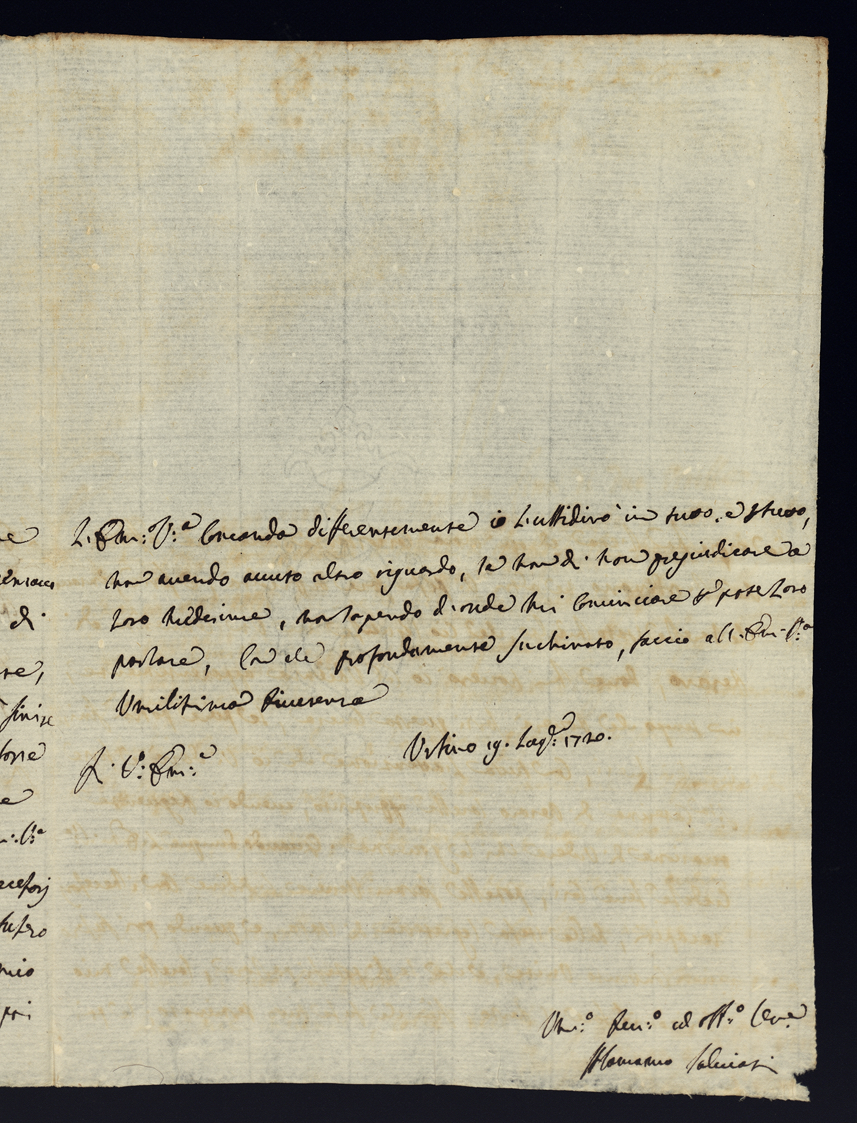 ne
L'Em:ᵃ V:ᵃ Comanda differentemente io L'ubbidirò in tutto, e p tutto,
non avendo avuto altro riguardo, se non di non pregiudicare a
di
Loro medesime, non sapendo d'onde mi Cominciare p poter Loro
parlare, Con che profondamente Inchinato, faccio all'Em: V:ᵃ
Umilissima Riverenza
D. V:ᵃ Em:ᵃ
Urbino 19. 1720.
n: V:ᵃ
Um:ᵒ Rev:ᵒ ed obb:ᵒ Serᵉ
Alamanno Salviati